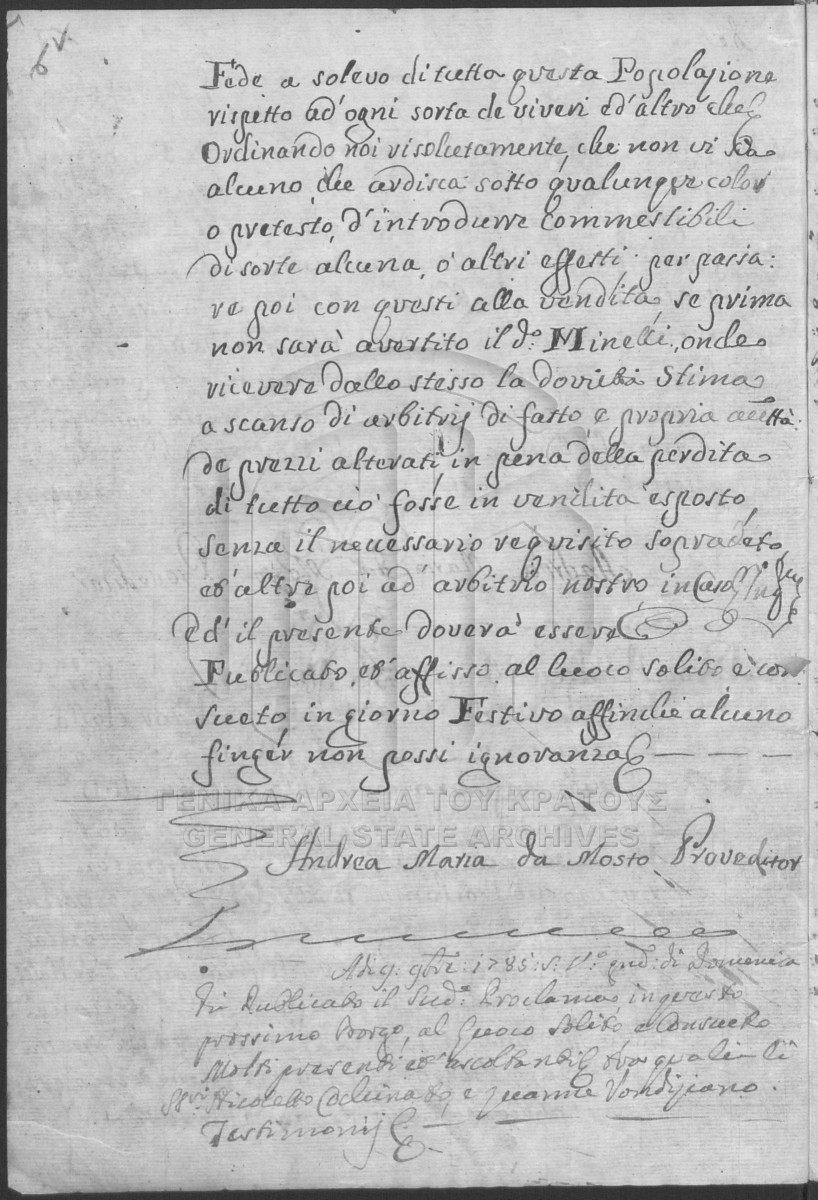 6v.
Fede a solevo di tutta questa Popolazione
rispetto ad' ogni sorta de viveri ed' altro che
Ordinando noi risolutamente, che non vi sia
alcuno, che ardisca sotto qualunque color
o pretesto, d' introdurre Commestibili
di sorte alcuna, o altri effetti per passa:
re poi con questi alla vendita, se prima
non sarà avertito il d.º Minelli, onde
ricevere dallo stesso la dovuta Stima
a scanso di arbitrij di fatto e propria
de prezzi alterati, in pena della perdita
di tutto ciò fosse in vendita esposto,
senza il necessario requisito sopradeto
ed' altre poi ad' arbitrio nostro in Caso
Ed' il presente doverà essere
Publicato, ed' affisso al luoco solito e con
sueto, in giorno Festivo affinchè alcuno
finger non possi ignoranza
ΓΕΝΙΚΑ ΑΡΧΕΙΑ ΤΟΥ ΚΡΑΤΟΥΣ
GENERAL STATE ARCHIVES
Andrea Maria da Mosto Proveditor
Adi 9: 9bre: 1785: S: V:º di Domenica
Fù Publicato il Sud.º Proclama in questo
prossimo Borgo, al luoco Solito e Consueto
Molti presenti ed' ascoltanti tra quali li
Ssri Nicoletto e Zuanne Vondiziano
Testimonij